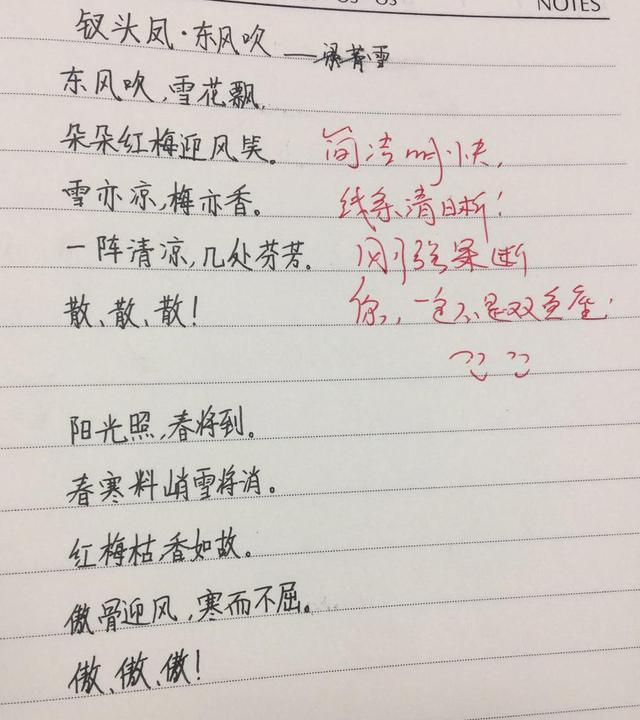 NOTES
钗头凤·东风吹
东风吹,雪花飘,
朵朵红梅迎风笑。 简洁明快,
雪亦凉,梅亦香。 线条清晰!
一阵清凉,几处芬芳。 刚强果断
散、散、散! 你,一定不是双鱼座.
阳光照,春将到。
春寒料峭雪将消。
红梅枯,香如故。
傲骨迎风,寒而不屈。
傲、傲、傲!